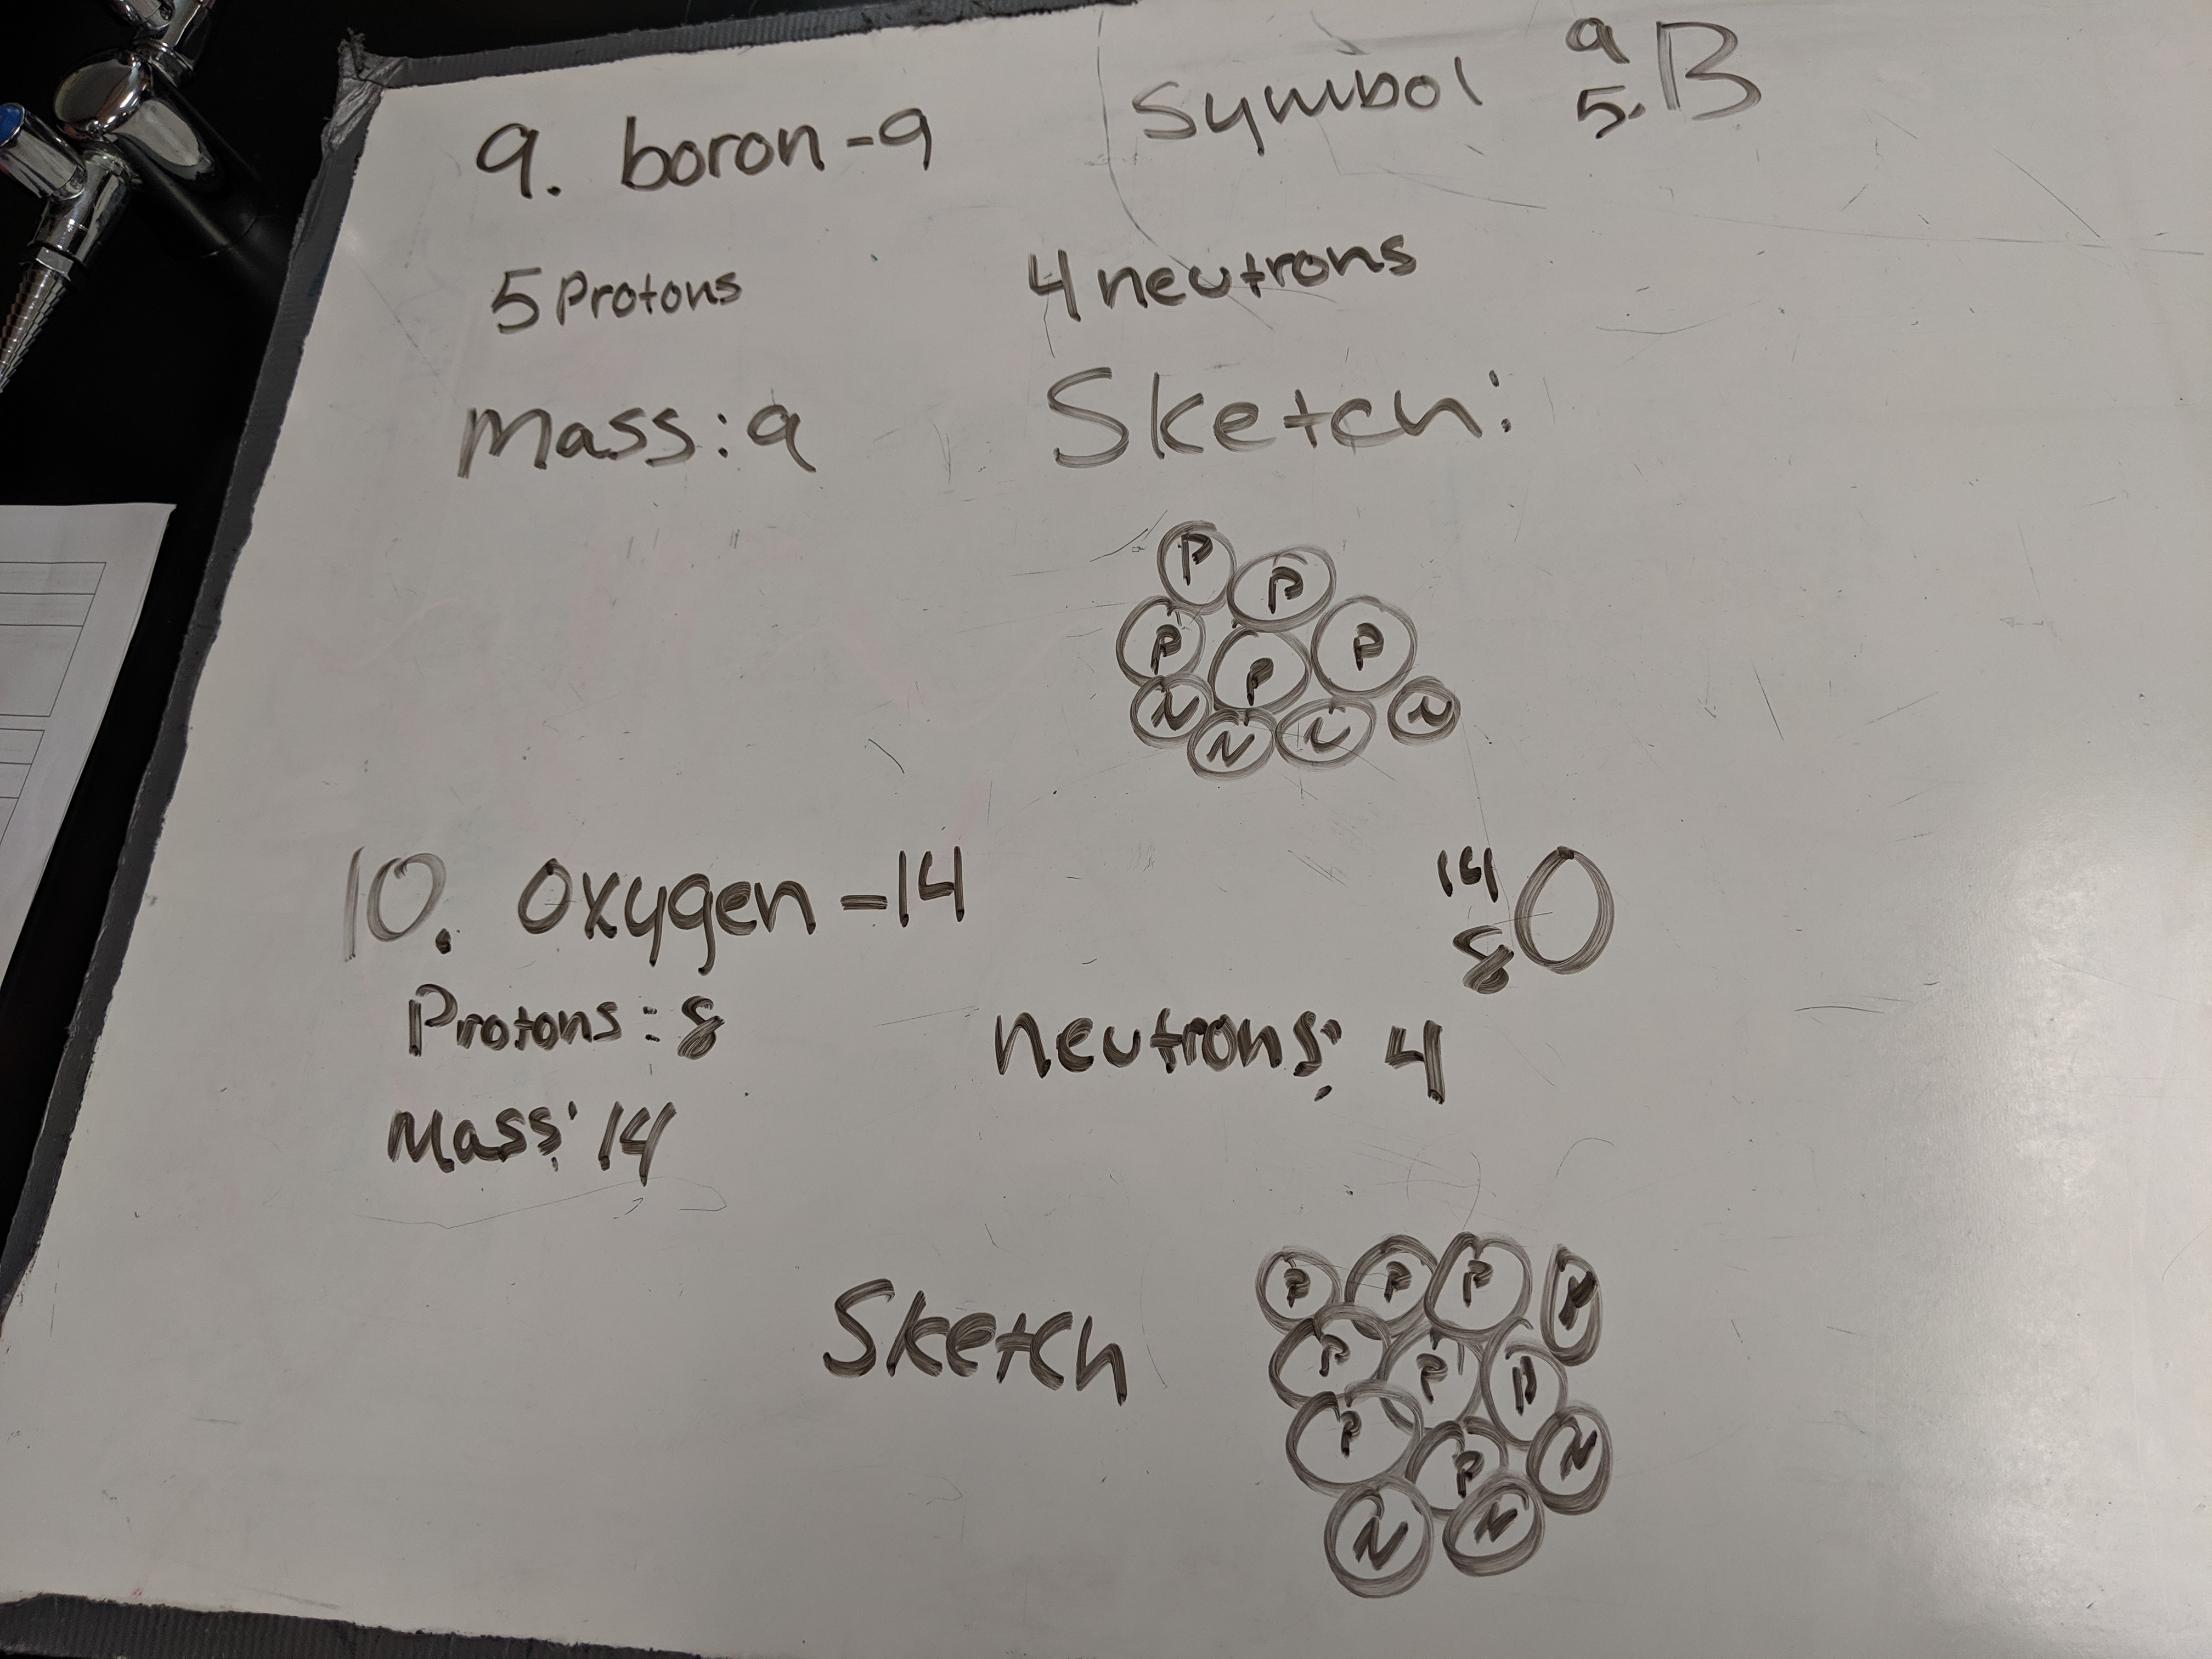 9. boron-9 Symbol 9 5 B
5 Protons 4 neutrons
Mass: 9 Sketch:
P P
P P P
N N N N
10. Oxygen-14 14 8 O
Protons: 8 neutrons: 4
Mass: 14
Sketch
P P P P
P P P
P P N
N N